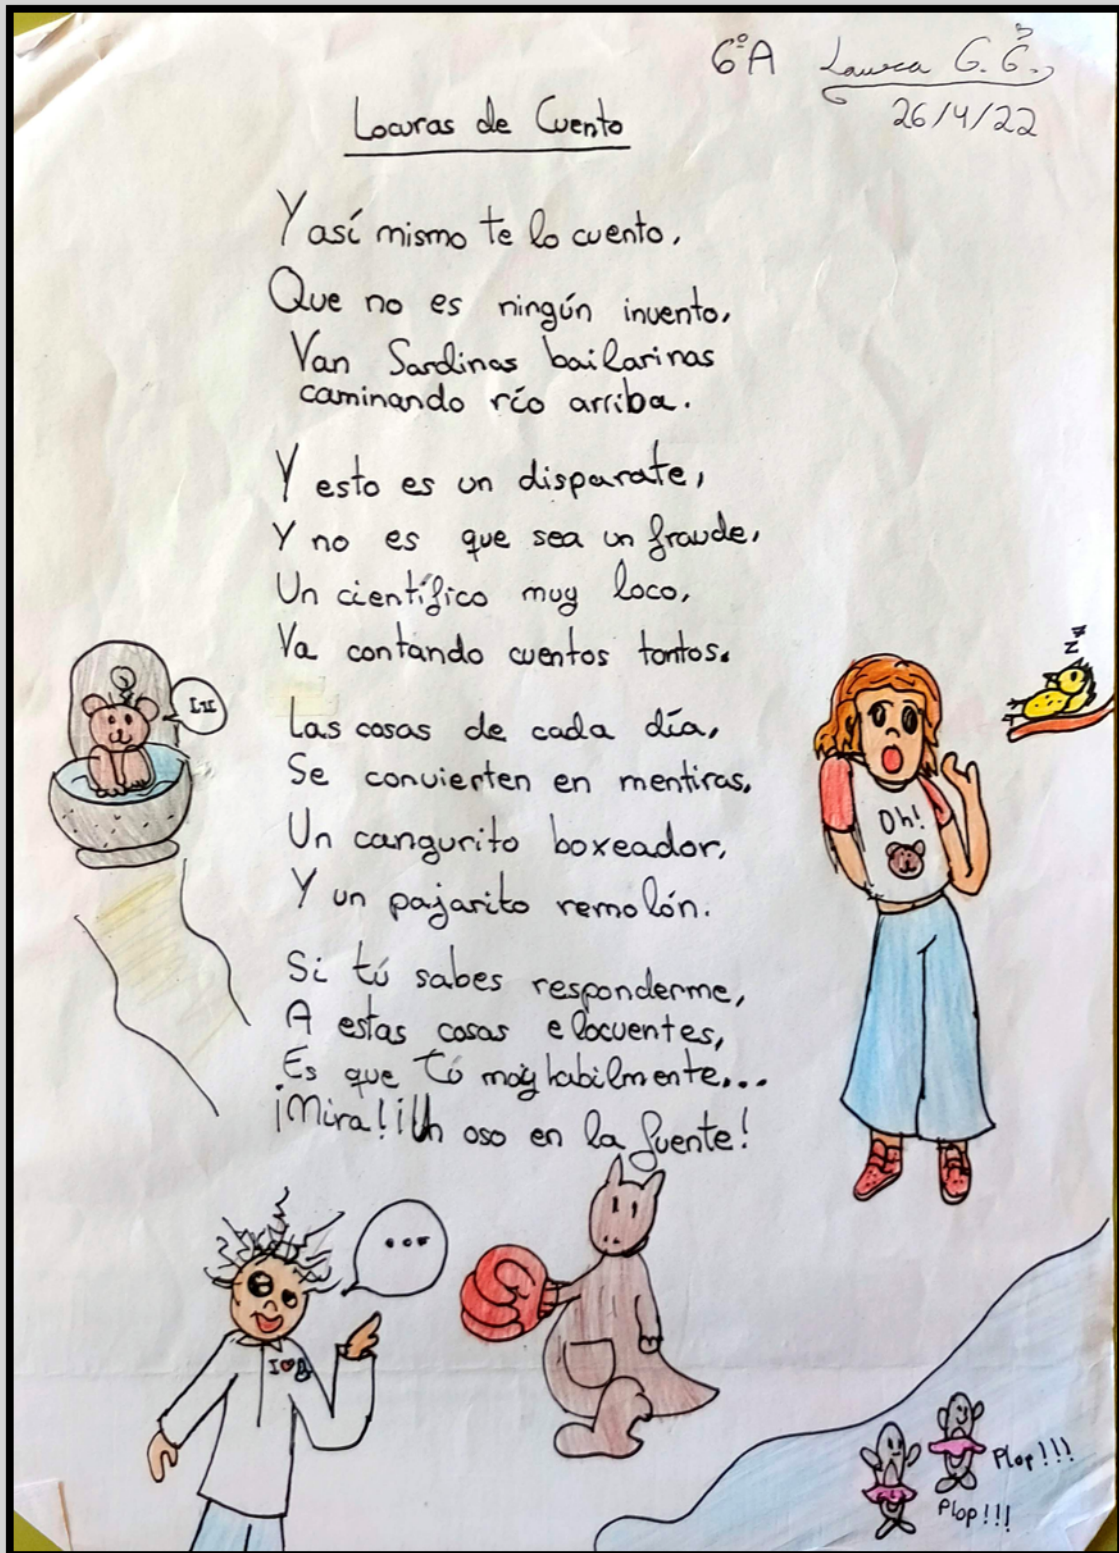 6ºA Laura G. G.
26/4/22
Locuras de Cuento
Y así mismo te lo cuento,
Que no es ningún invento,
Van Sardinas bailarinas
caminando río arriba.
Y esto es un disparate,
Y no es que sea un fraude,
Un científico muy loco,
Va contando cuentos tontos.
Las cosas de cada día,
Se convierten en mentiras,
Un cangurito boxeador,
Y un pajarito remolón.
Si tú sabes responderme,
A estas cosas elocuentes,
Es que tú muy habilmente...
¡Mira! ¡Un oso en la fuente!
Oh!
Plop!!!
Plop!!!